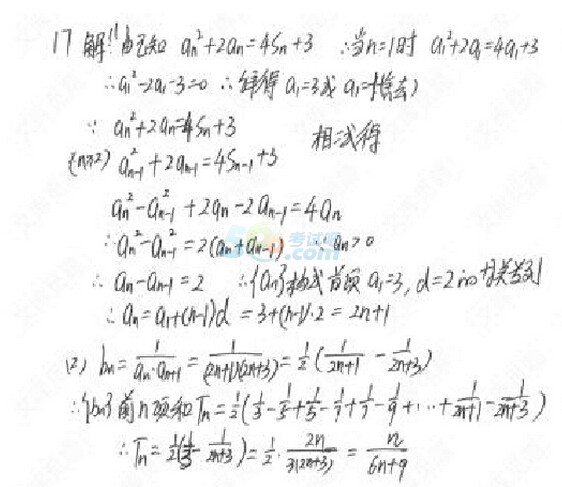 17 解:(1)由已知 aₙ²+2aₙ=4Sₙ+3 ∴当n=1时 a₁²+2a₁=4a₁+3
∴a₁²-2a₁-3=0 ∴解得 a₁=3或 a₁=-1(舍去)
∵ aₙ²+2aₙ=4Sₙ+3
(n≥2) aₙ₋₁²+2aₙ₋₁=4Sₙ₋₁+3 相减得
aₙ²-aₙ₋₁²+2aₙ-2aₙ₋₁=4aₙ
∴aₙ²-aₙ₋₁²=2(aₙ+aₙ₋₁) ∵aₙ>0
∴ aₙ-aₙ₋₁=2 ∴{aₙ}构成首项 a₁=3, d=2的等差数列
∴aₙ=a₁+(n-1)d=3+(n-1)·2=2n+1
(2) bₙ=1/(aₙ·aₙ₊₁)=1/((2n+1)(2n+3))=1/2(1/(2n+1)-1/(2n+3))
∴{bₙ}前n项和Tₙ=1/2(1/3-1/5+1/5-1/7+1/7-1/9+…+1/(2n+1)-1/(2n+3))
∴Tₙ=1/2(1/3-1/(2n+3))=1/2·2n/(3(2n+3))=n/(6n+9)